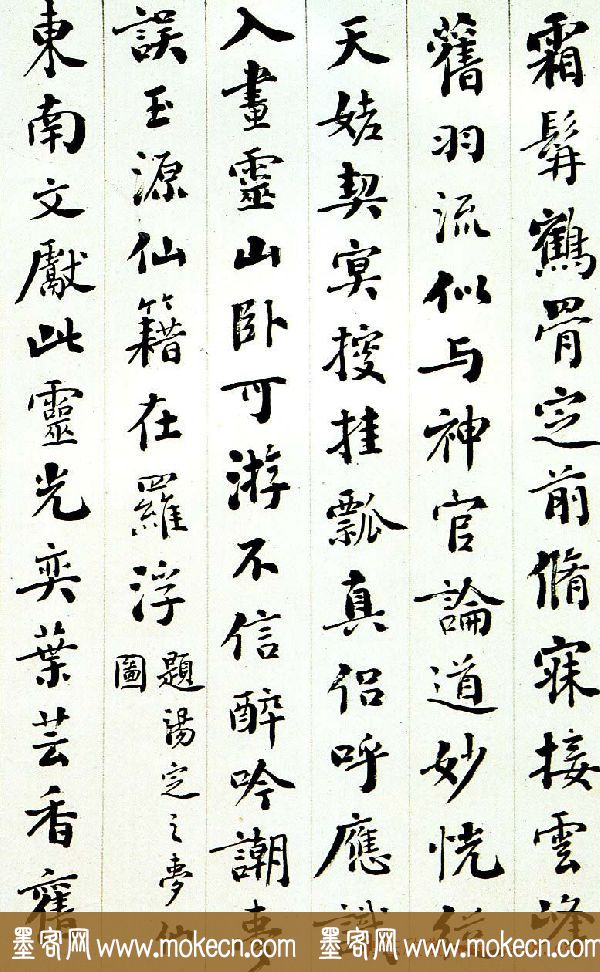 霜髯鶴骨定前脩寐接雲峰
舊羽流似與神官論道妙恍從
天姥契冥搜挂瓢真侣呼應識
入畫靈山卧可游不信醉吟謝
誤玉源仙籍在羅浮
題湯定之夢仙
圖
東南文獻此靈光奕葉芸香舊
墨客网 www.mokecn.com 墨客网 www.mokecn.com